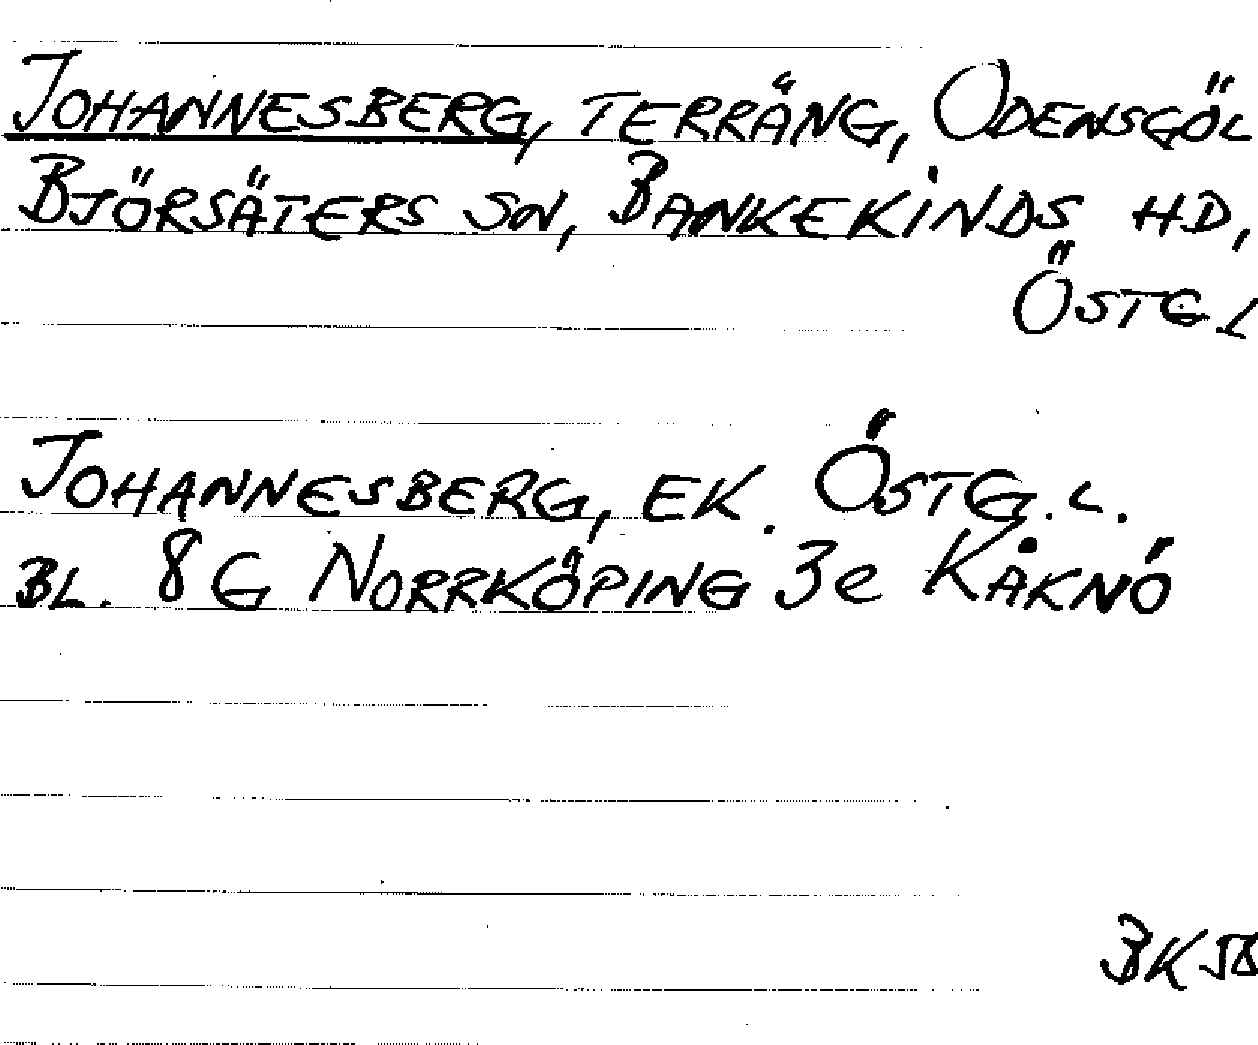 JOHANNESBERG, TERRÄNG, ODENSGÖL
BJÖRSÄTERS SN, BANKEKINDS HD,
ÖSTG.L
JOHANNESBERG, EK. ÖSTG.L.
BL. 8G NORRKÖPING 3e KÅKNÖ